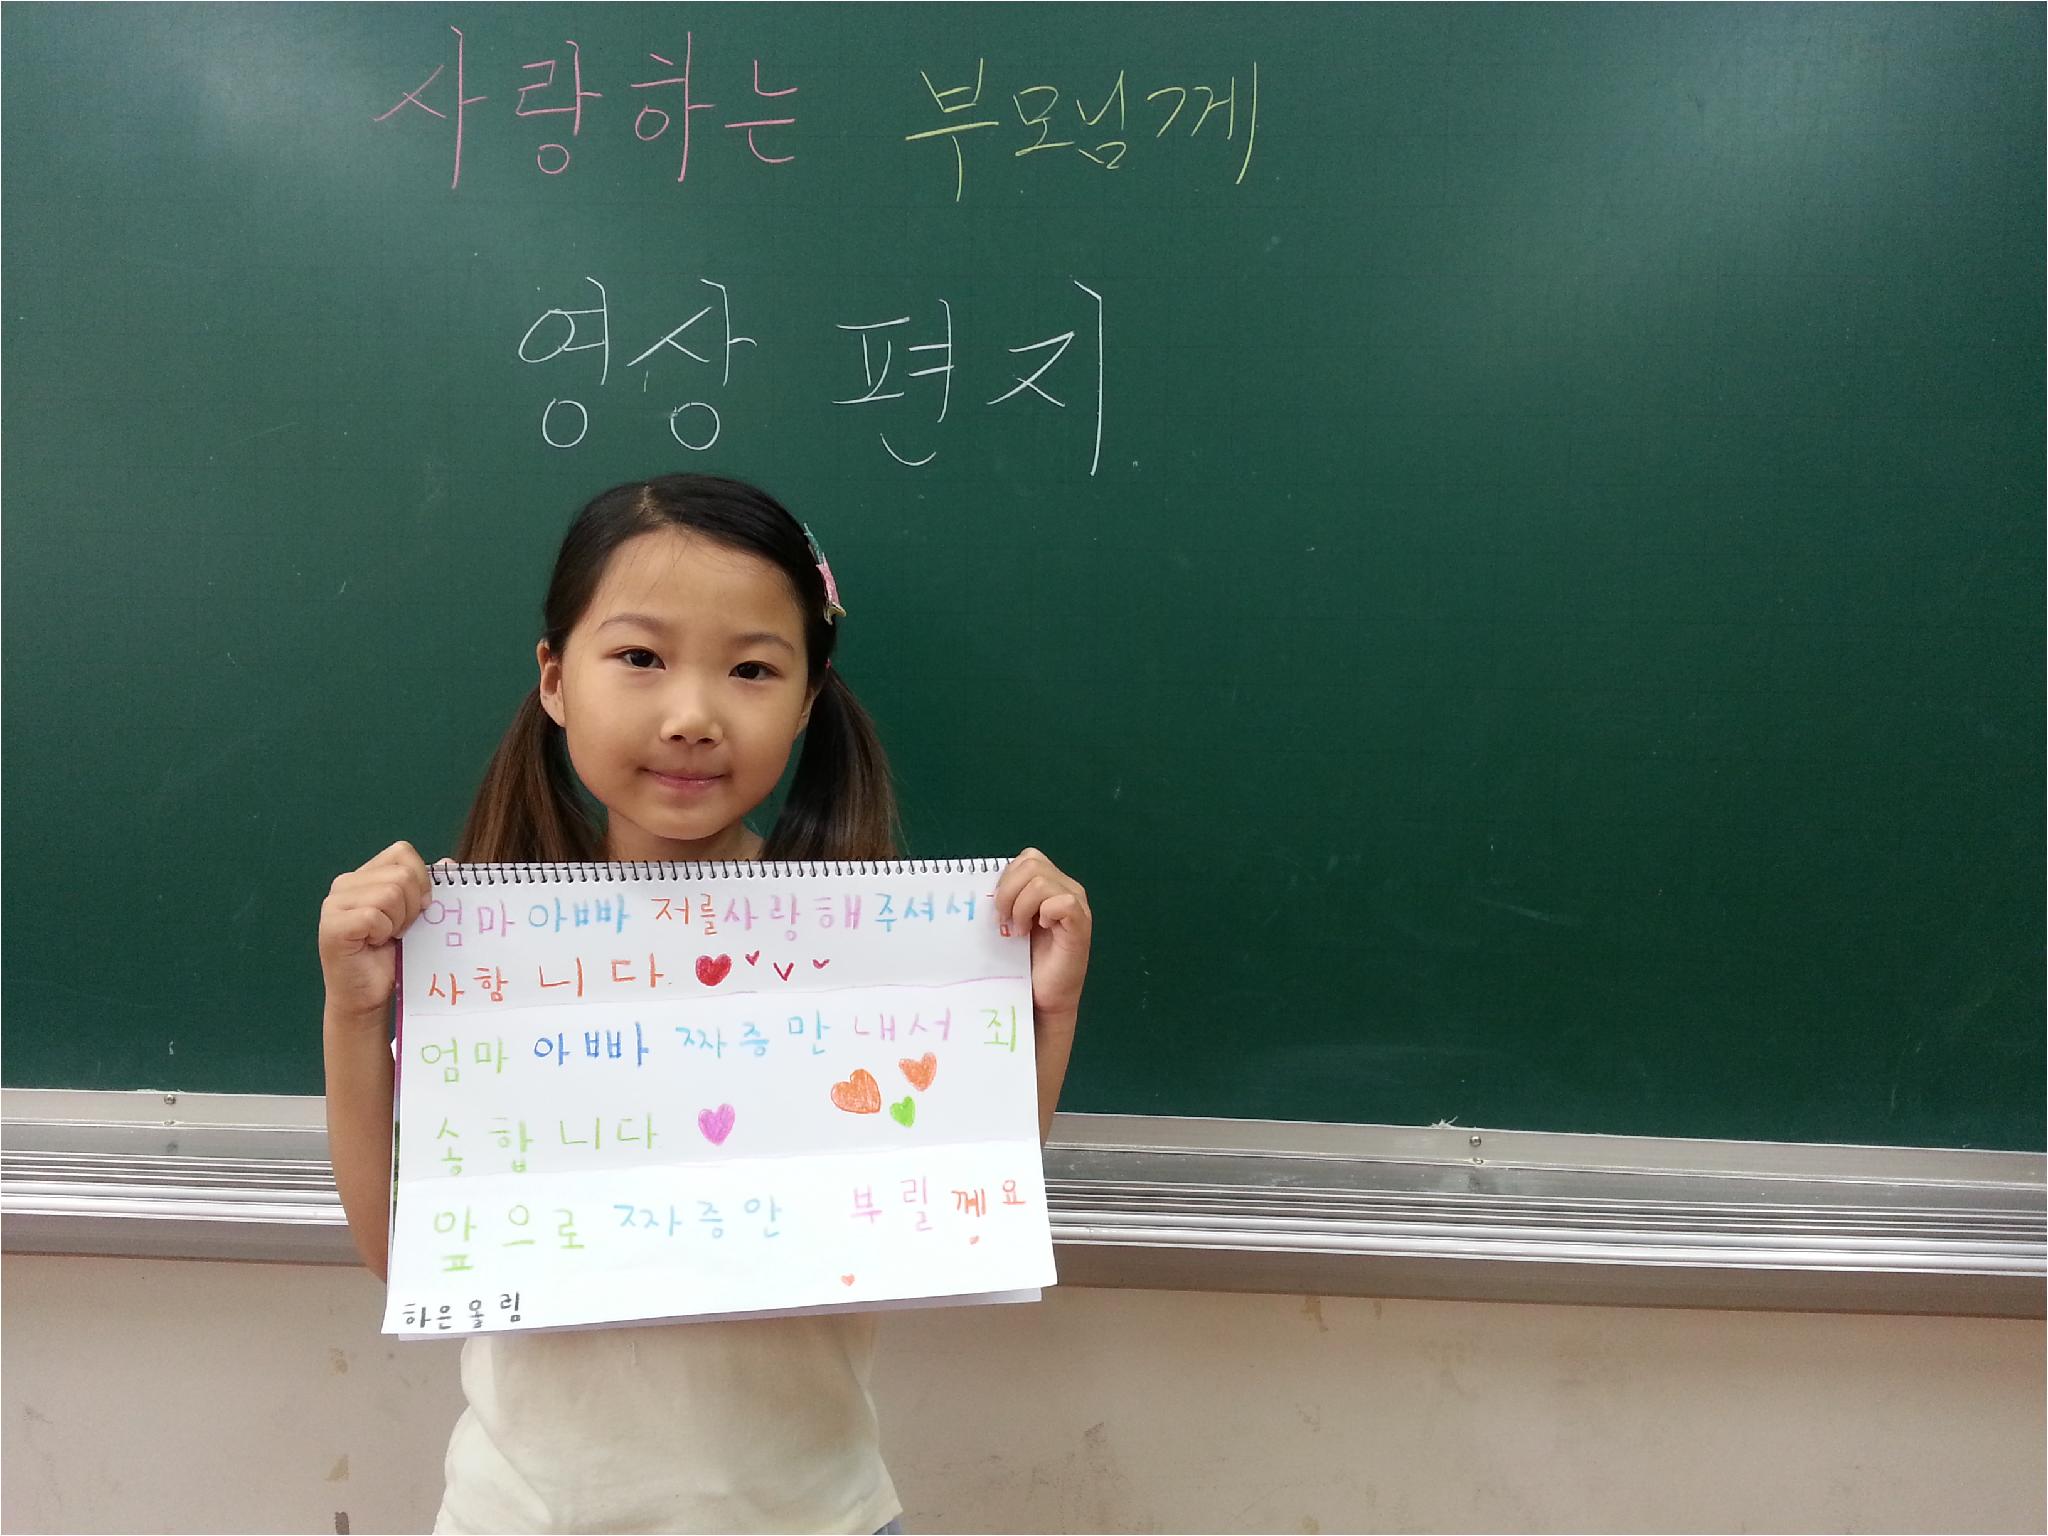 사랑하는 부모님께
영상 편지
엄마 아빠 저를 사랑해 주셔서
사함 니 다.
엄마 아빠 짜증만 내서 죄
송합니다
앞으로 짜증안 부릴꼔요
하은올림